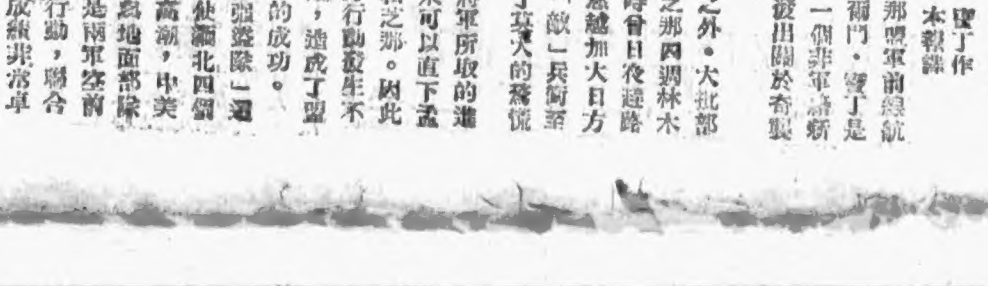 雷丁作
本報譯
那盟軍前線航
爾門·雷丁是
一個非軍籍新
發出關於奇襲
之外。大批部
之那四週林木
時曾日夜趕路
意越加大日方
「敵」兵衝至
了莫大的驚慌
將軍所取的進
來可以直下孟
和之那。因此
行動發生不
,造成了盟
的成功。
强盜隊」這
使緬北四個
高潮,中美
爲地面部隊
是兩軍空前
行動,聯合
成績非常卓